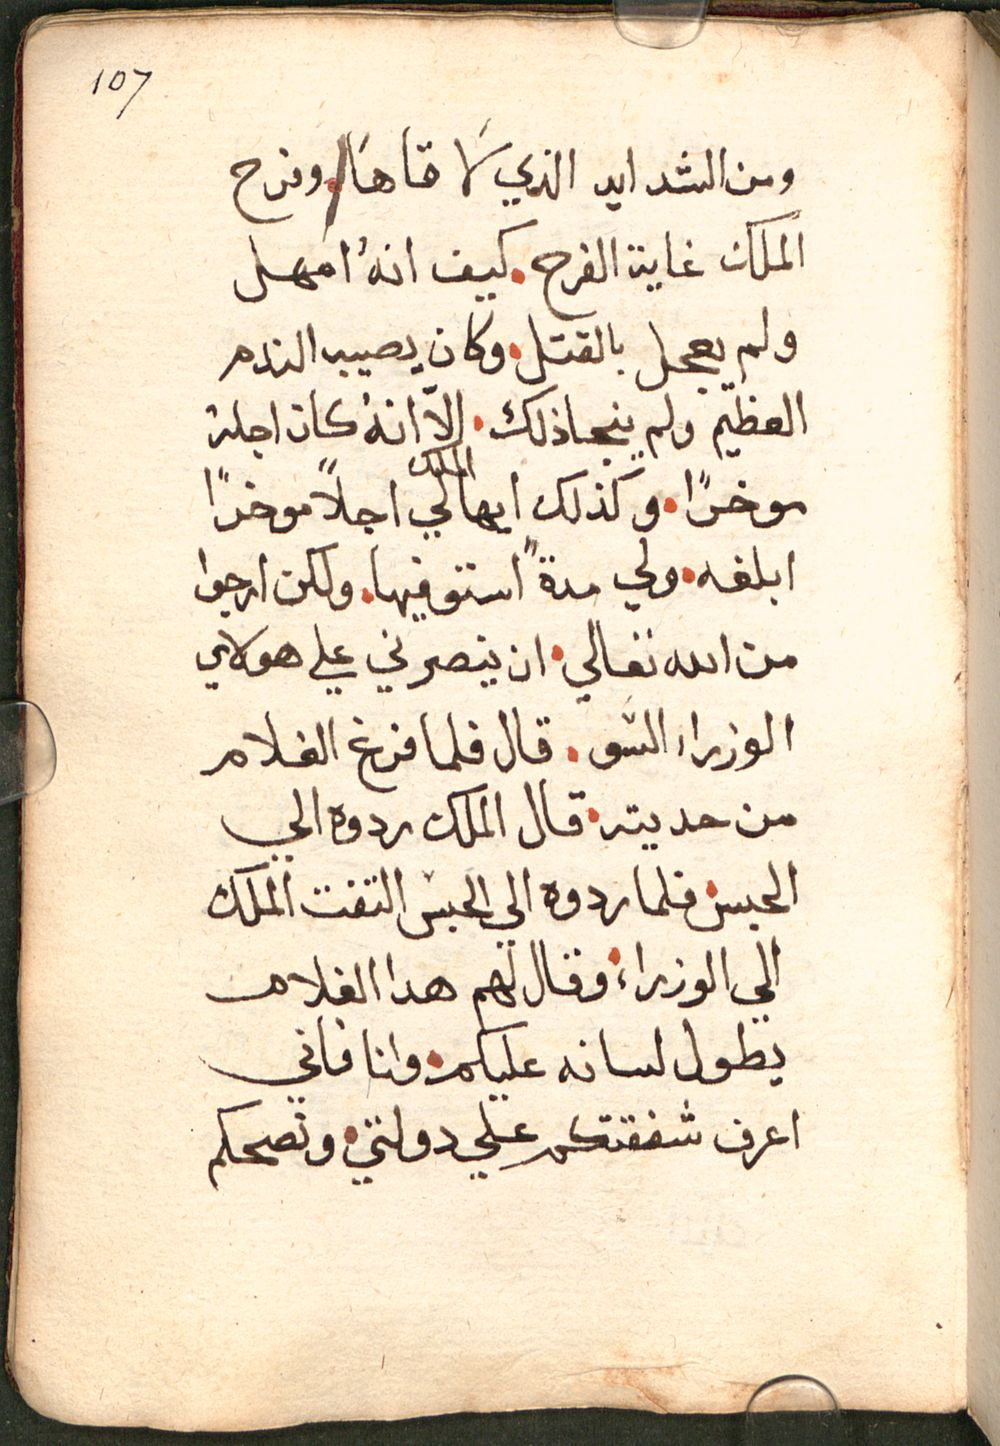 107
ومن الشدايد الذي لاقاها. وفرح
الملك غاية الفرح. كيف انهُ امهل
ولم يعجل بالقتل. وكان يصيبه الندم
العظيم ولم ينجيه ذلك. الّا انهُ كان اجله
موخرًا. وكذلك ايها الملك لي اجلاً موخرًا
ابلغه. ولي مدةً استوفيها. ولكن ارجوا
من الله تعالي. ان ينصرني علي هولاي
الوزراء السّو. قال فلما فرغ الغلام
من حديثه. قال الملك ردوه الي
الحبس. فلما ردوه الي الحبس التفت الملك
الي الوزراء. وقال لهم هدا الغلام
يطول لسانه عليكم. وانا فاني
اعرف شفقتكم علي دولتي. ونصحكم